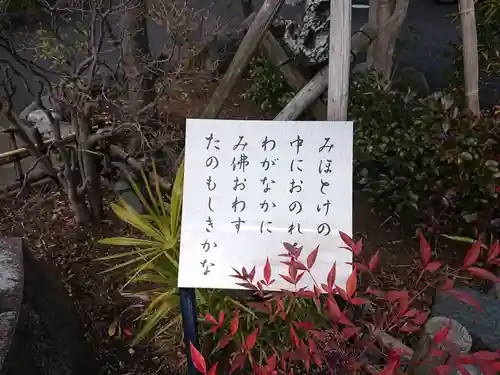 みほとけの
中におのれ
わがなかに
み佛おわす
たのもしきかな